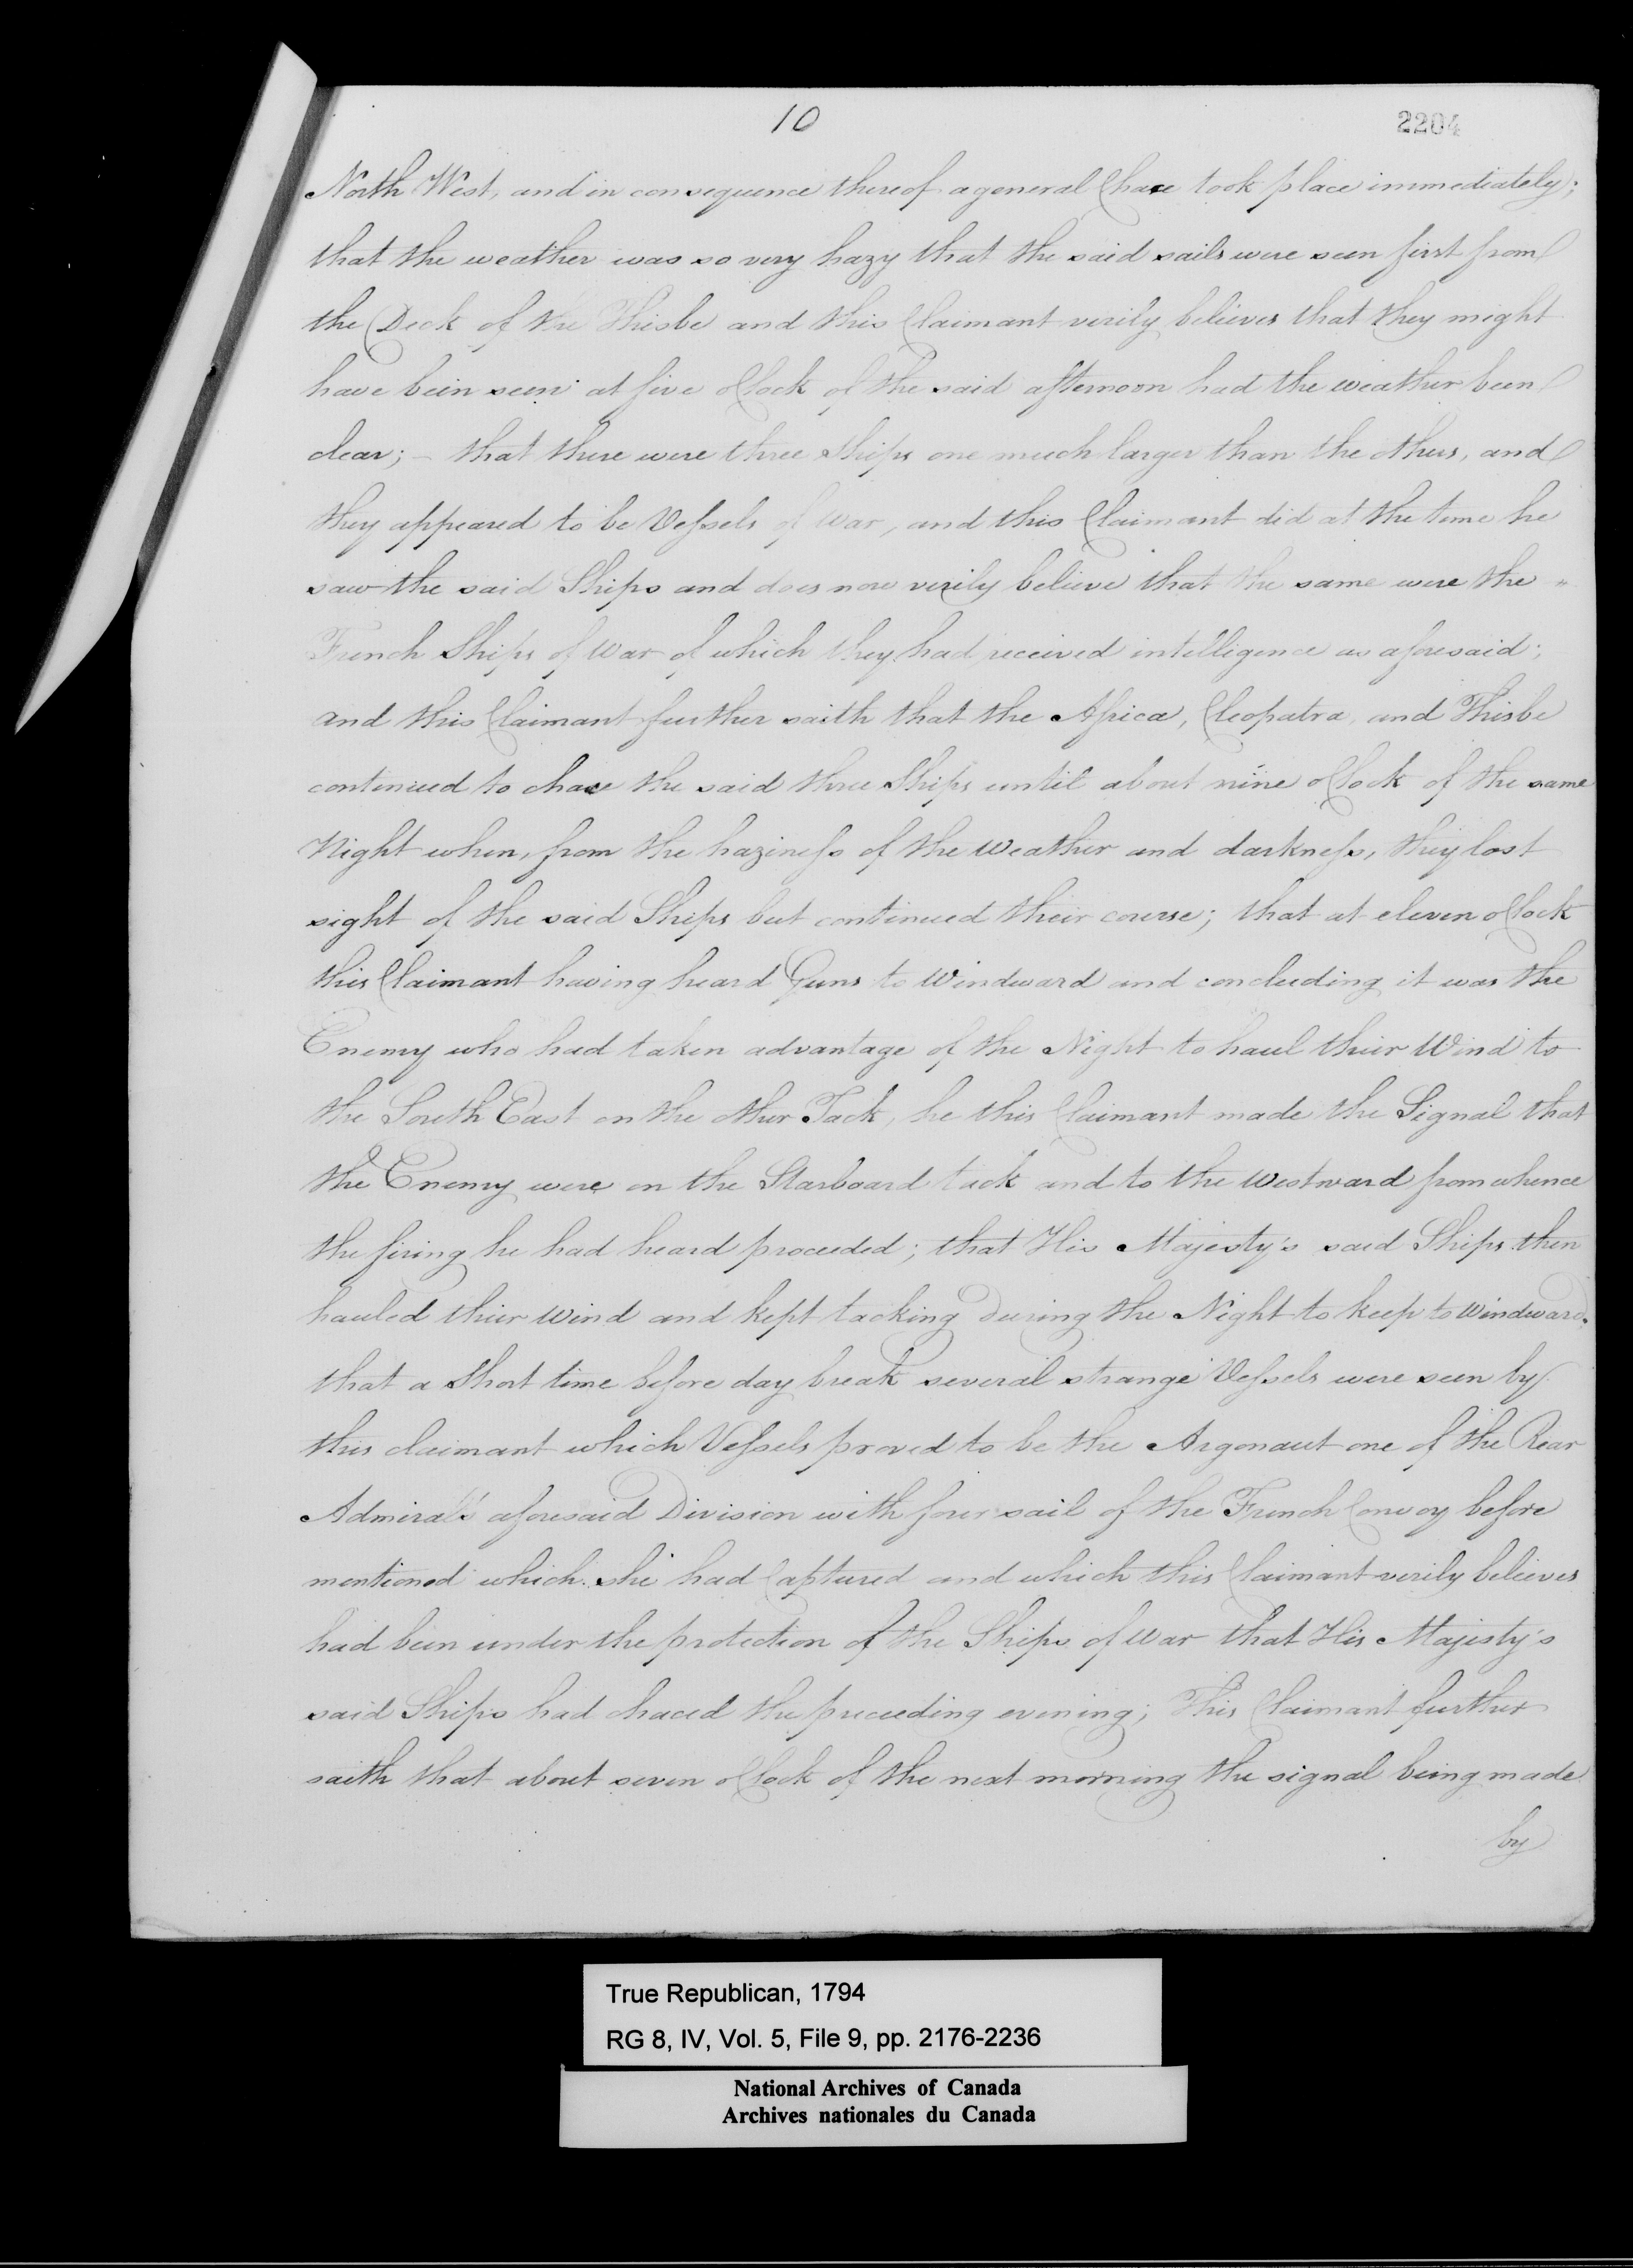 10
2204
North West, and in consequence thereof a general Chace took place immediately;
that the weather was so very hazy that the said sails were seen first from
the Deck of the Thisbe and this Claimant verily believes that they might
have been seen at five oClock of the said afternoon had the weather been
clear; - that there were three Ships one much larger than the others, and
they appeared to be Vessels of War, and this Claimant did at the time he
saw the said Ships and does now verily believe that the same were the "
French Ships of War of which they had received intelligence as aforesaid;
and this Claimant further saith that the Africa, Cleopatra, and Thisbe
continued to chace the said three Ships until about nine oClock of the same
Night when, from the haziness of the Weather and darkness, they lost
sight of the said Ships but continued their course; that at eleven oClock
this Claimant having heard Guns to Windward and concluding it was the
Enemy who had taken advantage of the Night to haul their Wind to
the South East on the other Tack, he this Claimant made the Signal that
the Enemy were on the Starboard tack and to the Westward from whence
the firing he had heard proceeded; that His Majesty's said Ships then
hauled their Wind and kept tacking during the Night to keep to Windward,
that a Short time before day break several strange Vessels were seen by
this claimant which Vessels proved to be the Argonaut one of the Rear
Admiral's aforesaid Division with four sail of the French Convoy before
mentioned which she had Captured and which this Claimant verily believes
had been under the protection of the Ships of War that His Majesty's
said Ships had chaced the preceeding evening; This Claimant further
saith that about seven oClock of the next morning the signal being made
by
True Republican, 1794
RG 8, IV, Vol. 5, File 9, pp. 2176-2236
National Archives of Canada
Archives nationales du Canada